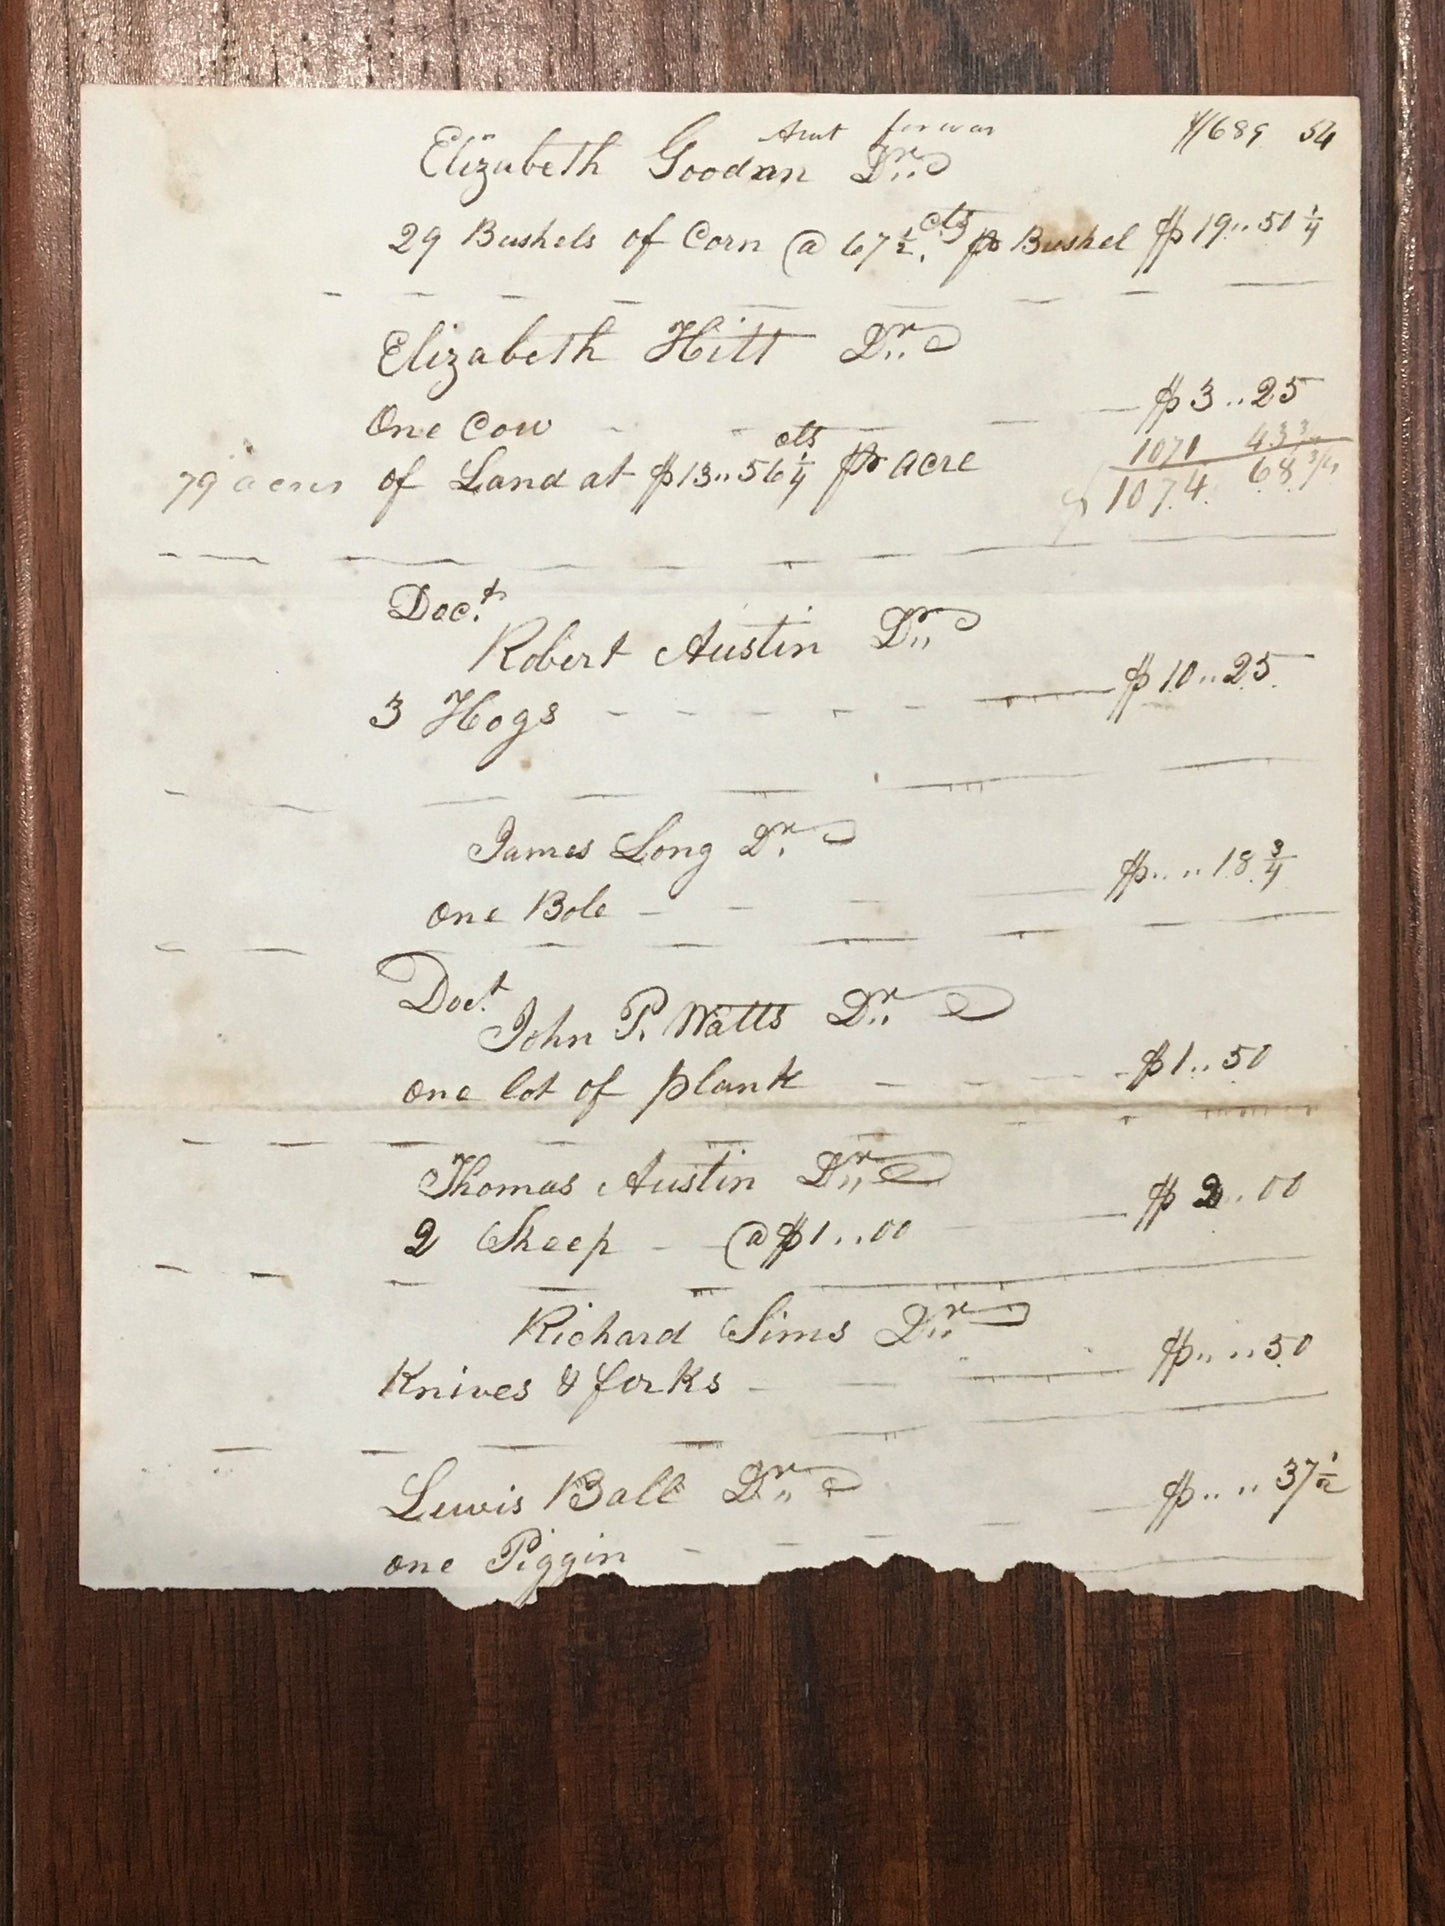 Amt forwar $1689 54
Elizabeth Goodman Dr..
29 Bushels of Corn @ 67 1/2 cts pr Bushel $19..50 1/4
Elizabeth Hitt Dr..
One Cow $3..25
1071 43 3/4
79 acres of Land at $13..56 1/4 cts pr acre
$1074. 68 3/4
Doct.
Robert Austin Dr..
3 Hogs $10..25
James Long Dr.
One Bole $....18 3/4
Doct.
John P. Watts Dr..
one lot of plank $1..50
Thomas Austin Dr..
2 Sheep @ $1..00 $2..00
Richard Sims Dr..
Knives & forks $....50
Lewis Ball Dr..
one Piggin $....37 1/2